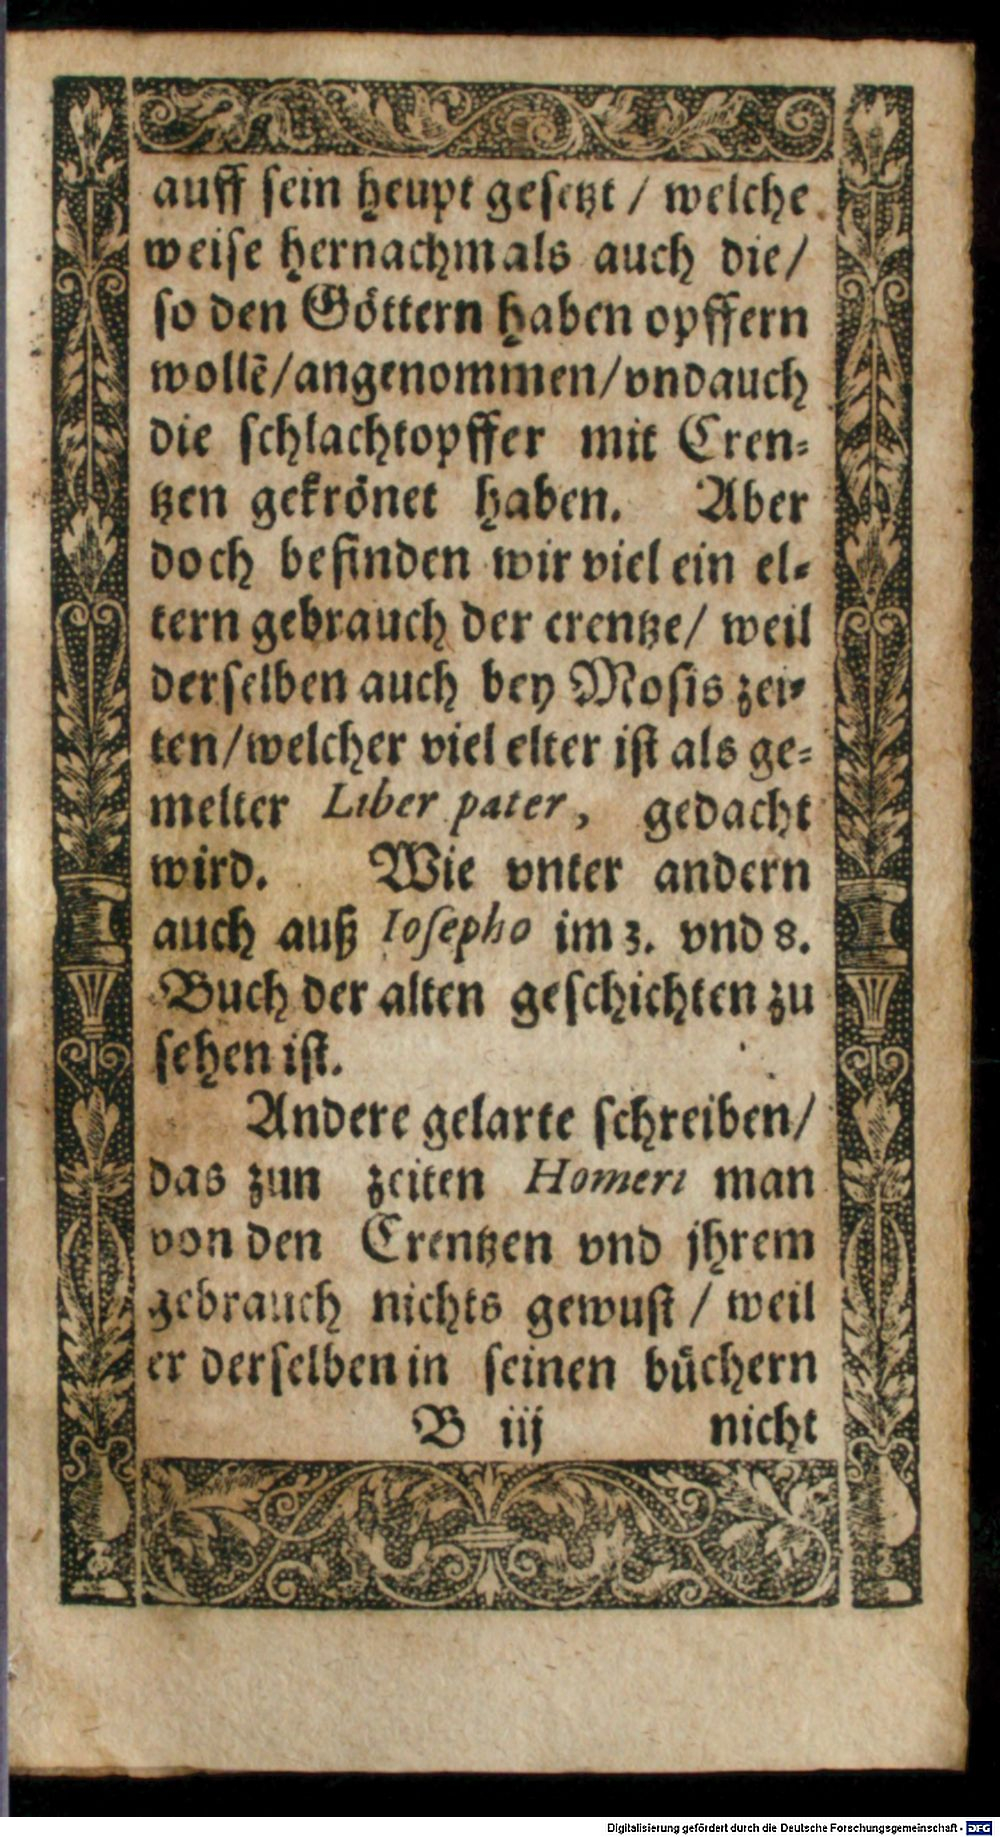 auff sein heupt gesetzt / welche
weise hernachmals auch die/
so den Göttern haben opffern
wollē/angenommen/vnd auch
die schlachtopffer mit Cren-
tzen gekrönet haben. Aber
doch befinden wir viel ein el-
tern gebrauch der crentze/ weil
derselben auch bey Mosis zei-
ten/welcher viel elter ist als ge-
melter Liber pater, gedacht
wird. Wie vnter andern
auch auß Iosepho im 3. vnd 8.
Buch der alten geschichten zu
sehen ist.
Andere gelarte schreiben/
das zun zeiten Homeri man
von den Crentzen vnd jhrem
gebrauch nichts gewust / weil
er derselben in seinen büchern
B iij nicht
Digitalisierung gefördert durch die Deutsche Forschungsgemeinschaft - DFG